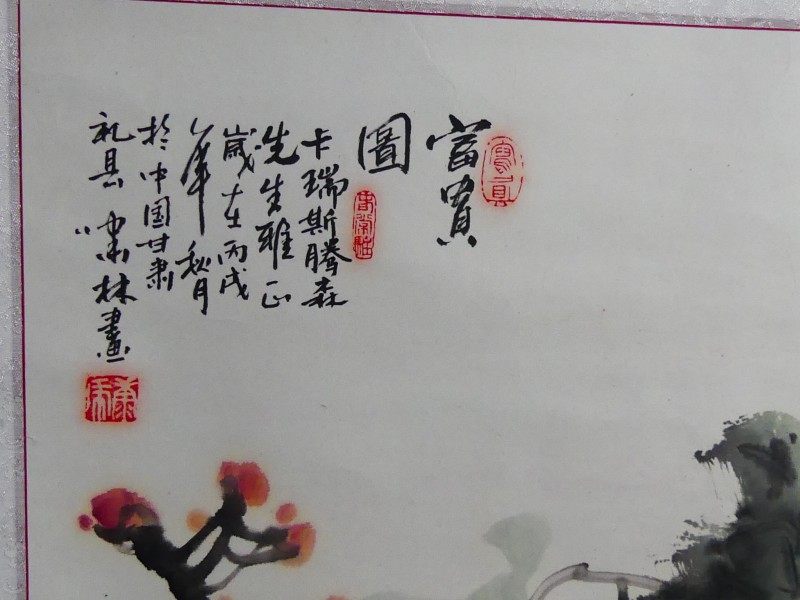 富貴
圖
卡瑞斯腾森
先生雅正
歲在丙戌
年秋月
於中国甘肃
礼县啸林畫